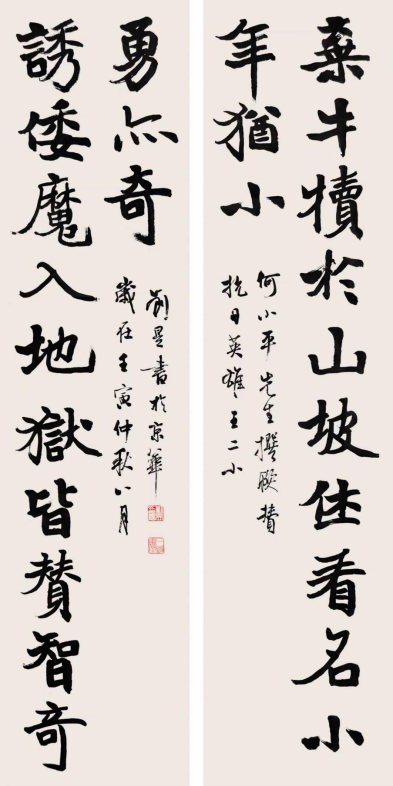 棄牛犢於山坡休看名小
年猶小
何小平先生撰聯贊
抗日英雄王二小
誘倭魔入地獄皆贊智奇
勇亦奇
歲在壬寅仲秋八月
劉書於京華